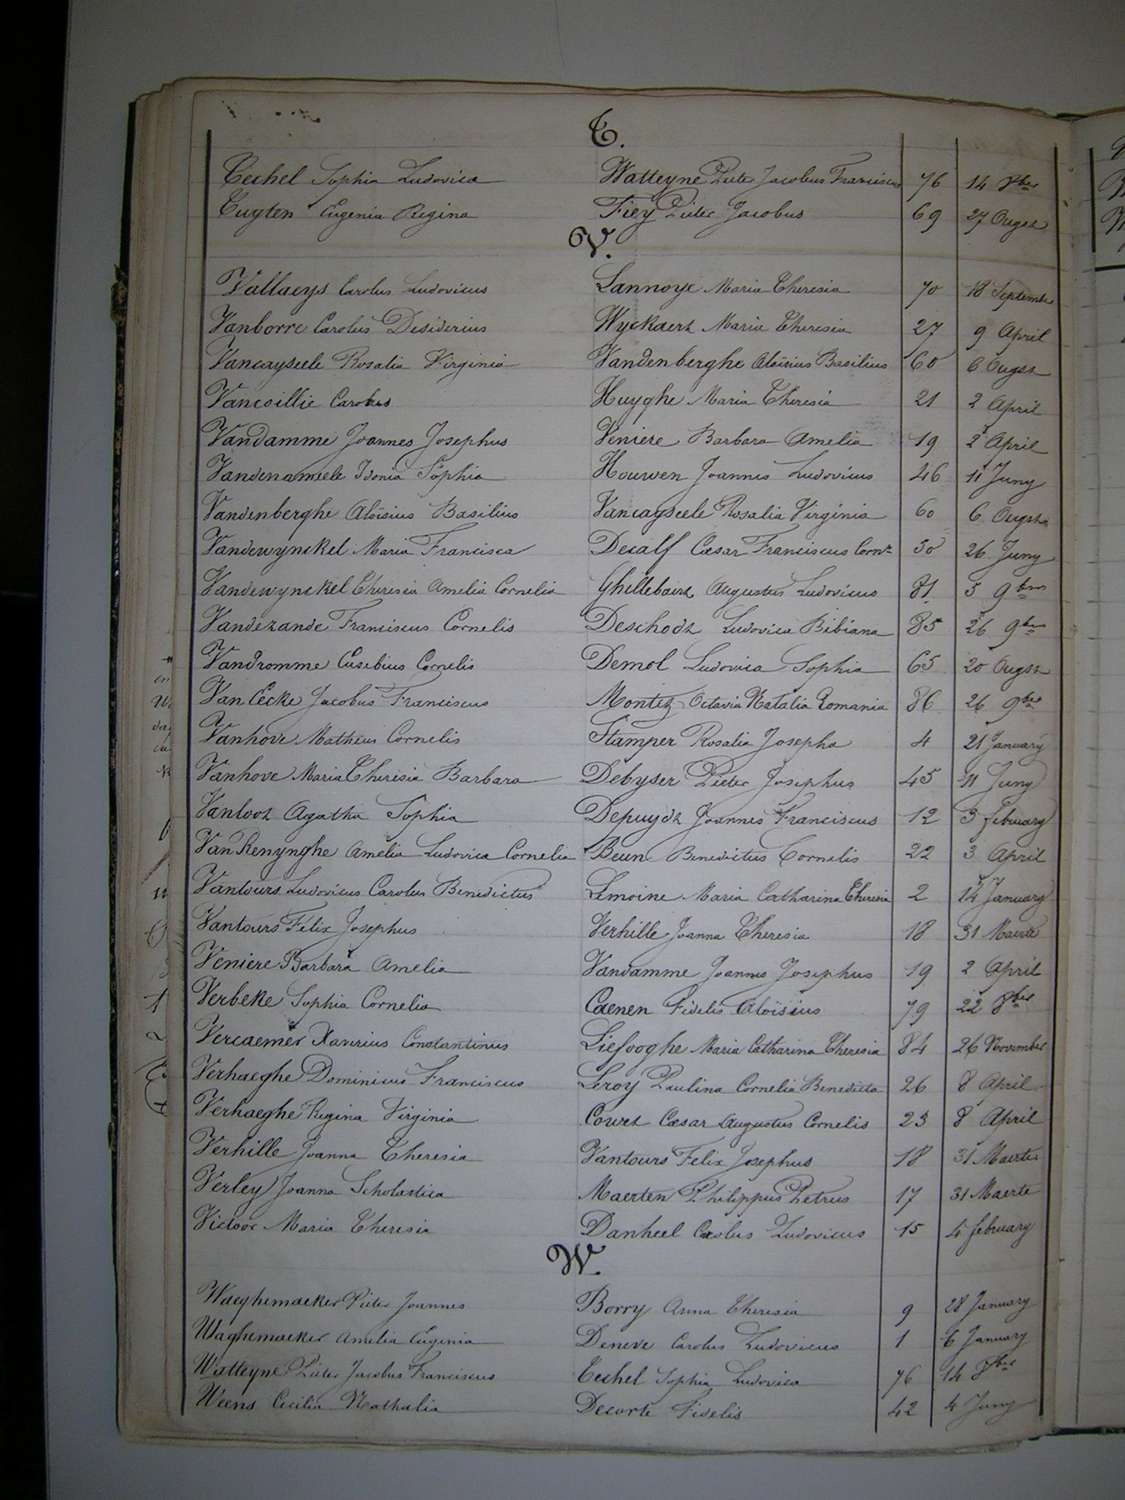 T.
Techel Sophia Ludovica Watteyne Pieter Jacobus Franciscus 76 14 8ber
Tuyten Eugenia Regina Fiey Pieter Jacobus 69 27 Ougst
V.
Vallaeys Carolus Ludovicus Lannoye Maria Theresia 70 18 Septembe
Vanborre Carolus Desiderius Wyckaert Maria Theresia 27 9 April
Vancayseele Rosalia Virginia Vandenberghe Aloïsius Basilius 60 6 Ougst
Vancoillie Carolus Huyghe Maria Theresia 21 2 April
Vandamme Joannes Josephus Veniere Barbara Amelia 19 2 April
Vandenameele Idonia Sophia Houwen Joannes Ludovicus 46 11 Juny
Vandenberghe Aloïsius Basilius Vancayseele Rosalia Virginia 60 6 Ougst
Vandewynckel Maria Francisca Decalf Cæsar Franciscus Corns 30 26 Juny
Vandewynckel Theresia Amelia Cornelia Ghillebaert Augustus Ludovicus 81 3 9ber
Vandezande Franciscus Cornelis Deschodt Ludovica Bibiana 85 26 9ber
Vandromme Eusebius Cornelis Demol Ludovica Sophia 65 20 Ougst
Van Eecke Jacobus Franciscus Montez Octavia Natalia Romania 86 26 9ber
Vanhove Matheus Cornelis Stamper Rosalia Josepha 4 21 January
Vanhove Maria Theresia Barbara Debyser Pieter Josephus 45 11 Juny
Vanloot Agatha Sophia Depuydt Joannes Franciscus 12 3 February
Van Renynghe Amelia Ludovica Cornelia Beun Benedictus Cornelis 22 3 April
Vantours Ludovicus Carolus Benedictus Lemoine Maria Catharina Theresia 2 14 January
Vantours Felix Josephus Verhille Joanna Theresia 18 31 Maerte
Veniere Barbara Amelia Vandamme Joannes Josephus 19 2 April
Verbeke Sophia Cornelia Caenen Fidelis Aloïsius 79 22 8ber
Vercaemer Xaverius Constantinus Liefooghe Maria Catharina Theresia 84 26 November
Verhaeghe Dominicus Franciscus Leroy Paulina Cornelia Benedicta 26 8 April
Verhaeghe Regina Virginia Couvet Cæsar Augustus Cornelis 23 8 April
Verhille Joanna Theresia Vantours Felix Josephus 18 31 Maerte
Verley Joanna Scholastica Maerten Philippus Petrus 17 31 Maerte
Victoor Maria Theresia Danheel Carolus Ludovicus 15 4 february
W.
Waeghemaeker Pieter Joannes Borry Anna Theresia 9 28 January
Waghemaeker Amelia Eugenia Deneve Carolus Ludovicus 1 6 January
Watteyne Pieter Jacobus Franciscus Techel Sophia Ludovica 76 14 8ber
Weens Cecilia Nathalia Decorte Fidelis 42 4 Juny